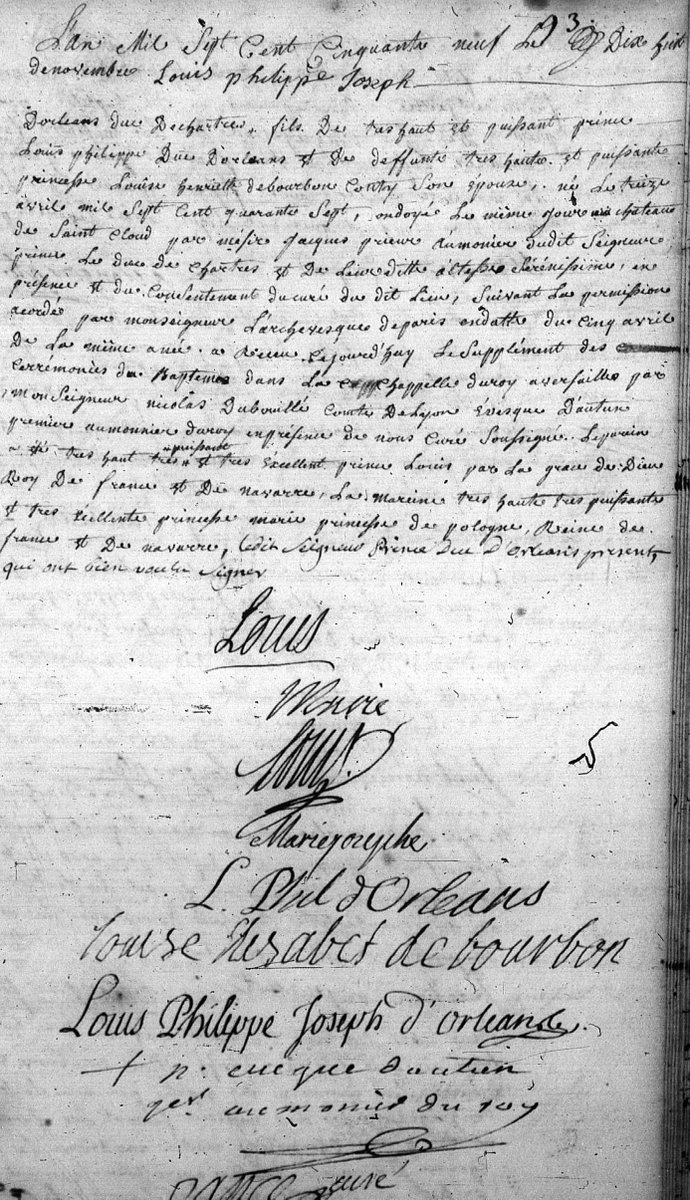 93.
L'an Mil Sept Cent Cinquante neuf Le Dix huit
denovembre Louis philippe Joseph
Dorleans duc Dechartres, fils De tres haut et puissant prince
Louis philippe Duc Dorleans et de deffunte tres haute et puissante
princesse Louise henriette debourbon Conty Son epouse, né Le treize
avril mil Sept Cent quarante Sept, ondoyé Le même Jour au chateau
de Saint Cloud par mésire Jacques prieur aumonier dudit Seigneur
prince Le duc de Chartres et De Leurditte altesse Sérénissime, en
présence et du Consentement ducuré du dit Lieu, Suivant La permission
acordée par monseigneur L'archevesque deparis endatte du Cinq avril
De La même anée. a Reçeu Cejourd'huy Le Supplément des
Cerrémonies du Bapteme dans La Chappelle duroy a versailles par
monseigneur nicolas Dubouillé Comte DeLyon Evesque D'autun
premier aumonnier duroy enprésence de nous Curé Soussigné. Leparein
a été tres haut tres puissant et tres Exellent prince Louis par La grace de Dieu
Roy De france et De navarre, La mareine tres haute tres puissante
et tres Exellente princesse marie princesse de pologne, Reine de
france et De navarre, Ledit Seigneur Prince Duc D'Orleans présent,
qui ont bien voulu Signer
Louis
Marie
Louis
Marie Josephe
L. Phil d'Orleans
Louise Elisabet de bourbon
Louis Philippe Joseph d'orleans.
+ n. eveque d'autun
per aumonier du roy
curé